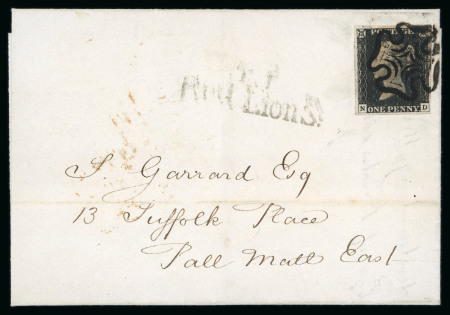 POSTAGE
ONE PENNY
N D
T.P
Red Lion S^t
S. Garrard Esq
13 Suffolk Place
Pall Mall East